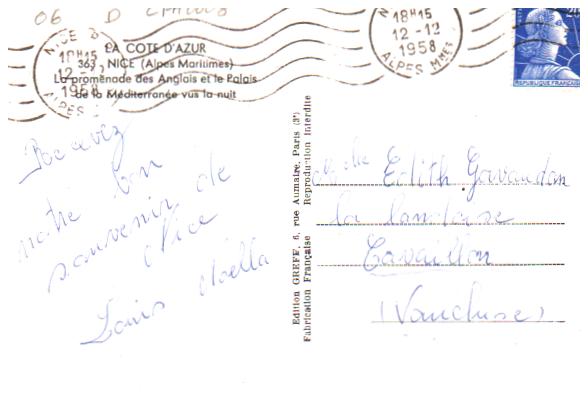 06 D
NICE
18H15
12-12
1958
ALPES MMES
18H15
12-12
1958
ALPES MMES
LA COTE D'AZUR
363, NICE (Alpes Maritimes)
La promenade des Anglais et le Palais
de la Méditerranée vus la nuit
REPUBLIQUE FRANÇAISE
Recevez
notre bon
souvenir de
Nice
Louis Noëlla
Edition GREFF, 6, rue Aumaire, Paris (3e)
Fabrication Française Reproduction Interdite
Mlle Edith Gavaudan
la
Cavaillon
(Vaucluse)